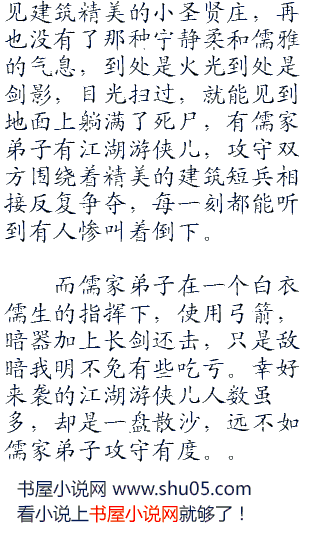 见建筑精美的小圣贤庄，再
也没有了那种宁静柔和儒雅
的气息，到处是火光到处是
剑影，目光扫过，就能见到
地面上躺满了死尸，有儒家
弟子有江湖游侠儿，攻守双
方围绕着精美的建筑短兵相
接反复争夺，每一刻都能听
到有人惨叫着倒下。
而儒家弟子在一个白衣
儒生的指挥下，使用弓箭，
暗器加上长剑还击，只是敌
暗我明不免有些吃亏。幸好
来袭的江湖游侠儿人数虽
多，却是一盘散沙，远不如
儒家弟子攻守有度。。
书屋小说网 www.shu05.com
看小说上书屋小说网就够了！